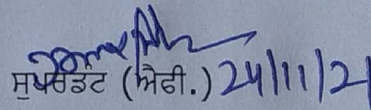 ਸੁਪਰਡੰਟ (ਐਫੀ.) 24/11/21